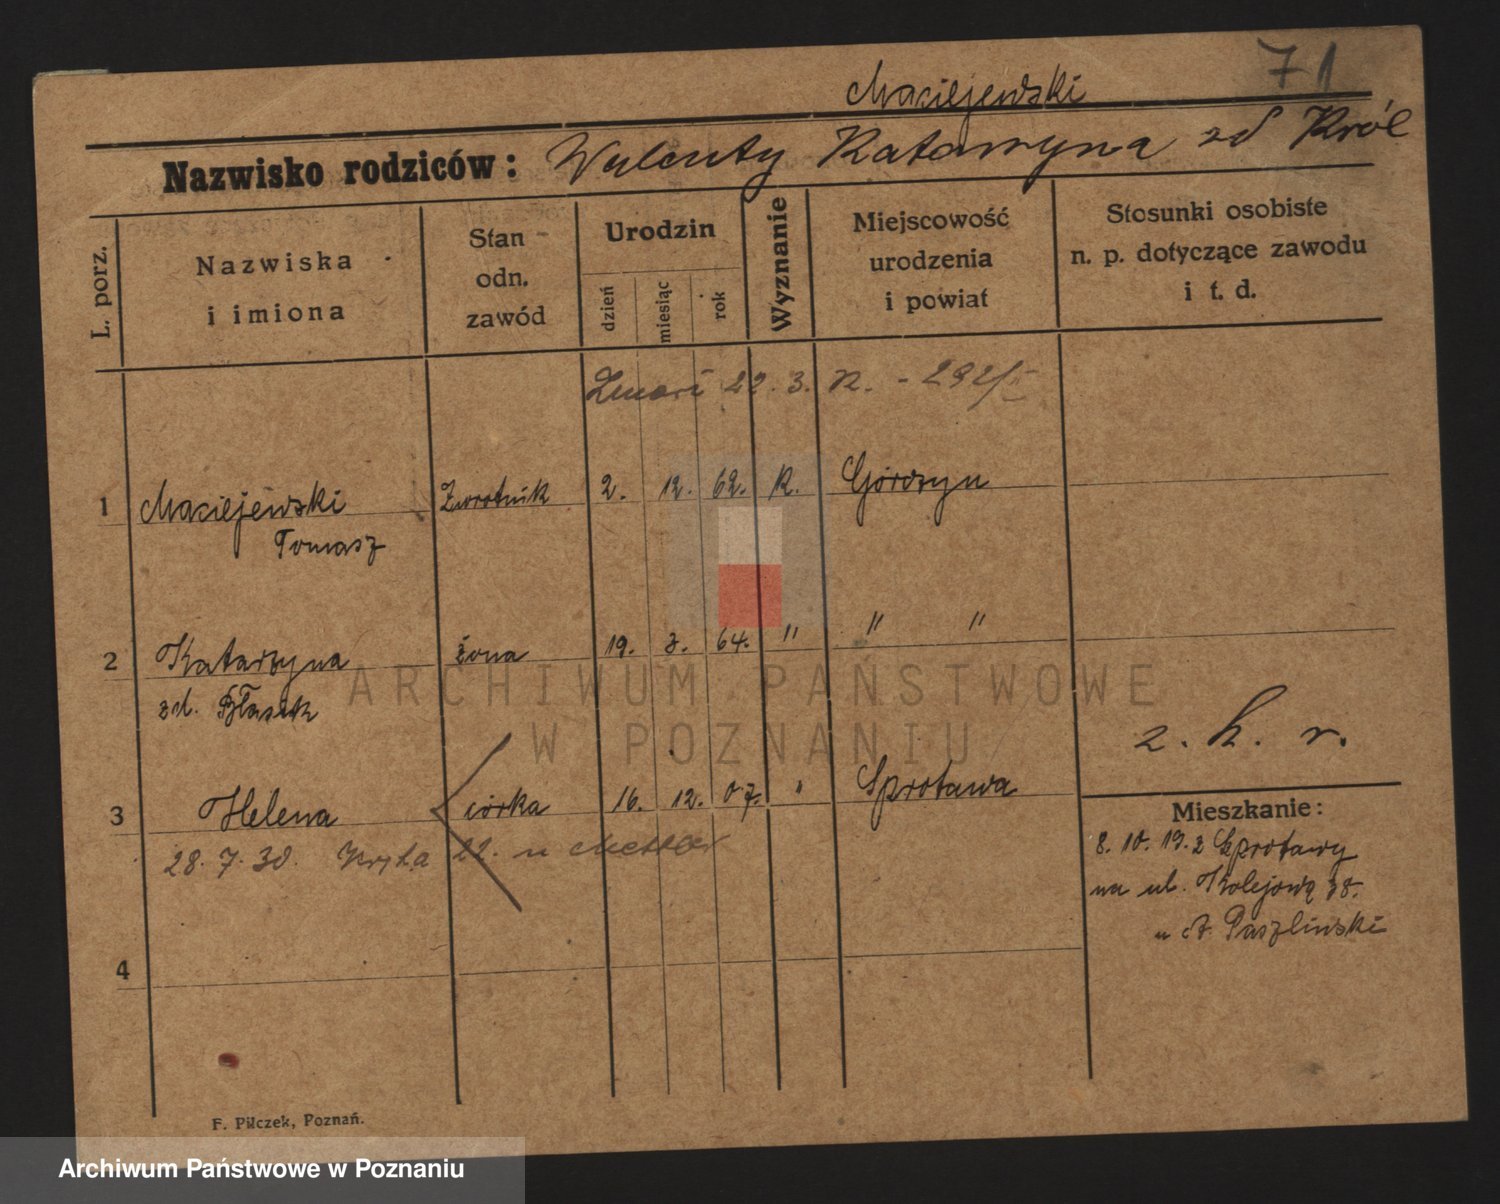 71
Maciejewski
Nazwisko rodziców: Walenty Katarzyna zd Król
L. porz.
Nazwiska i imiona
Stan odn. zawód
Urodzin
dzień miesiąc rok
Wyznanie
Miejscowość urodzenia i powiat
Stosunki osobiste n. p. dotyczące zawodu i t. d.
Zmarł 22. 3.
1 Maciejewski Zwrotnik 2. 12. 62. R. Górczyn
Tomasz
2 Katarzyna żona 19. 3. 64. " " "
zd.
z. k. r.
3 Helena córka 16. 12. 07. " Sprotawa
28. 7. 30. 22. u
4
Mieszkanie:
8. 10. 19. z Sprotawy
na ul. Kolejową 38.
u A. Paszlinski
F. Pilczek, Poznań.
ARCHIWUM PAŃSTWOWE
W POZNANIU
Archiwum Państwowe w Poznaniu